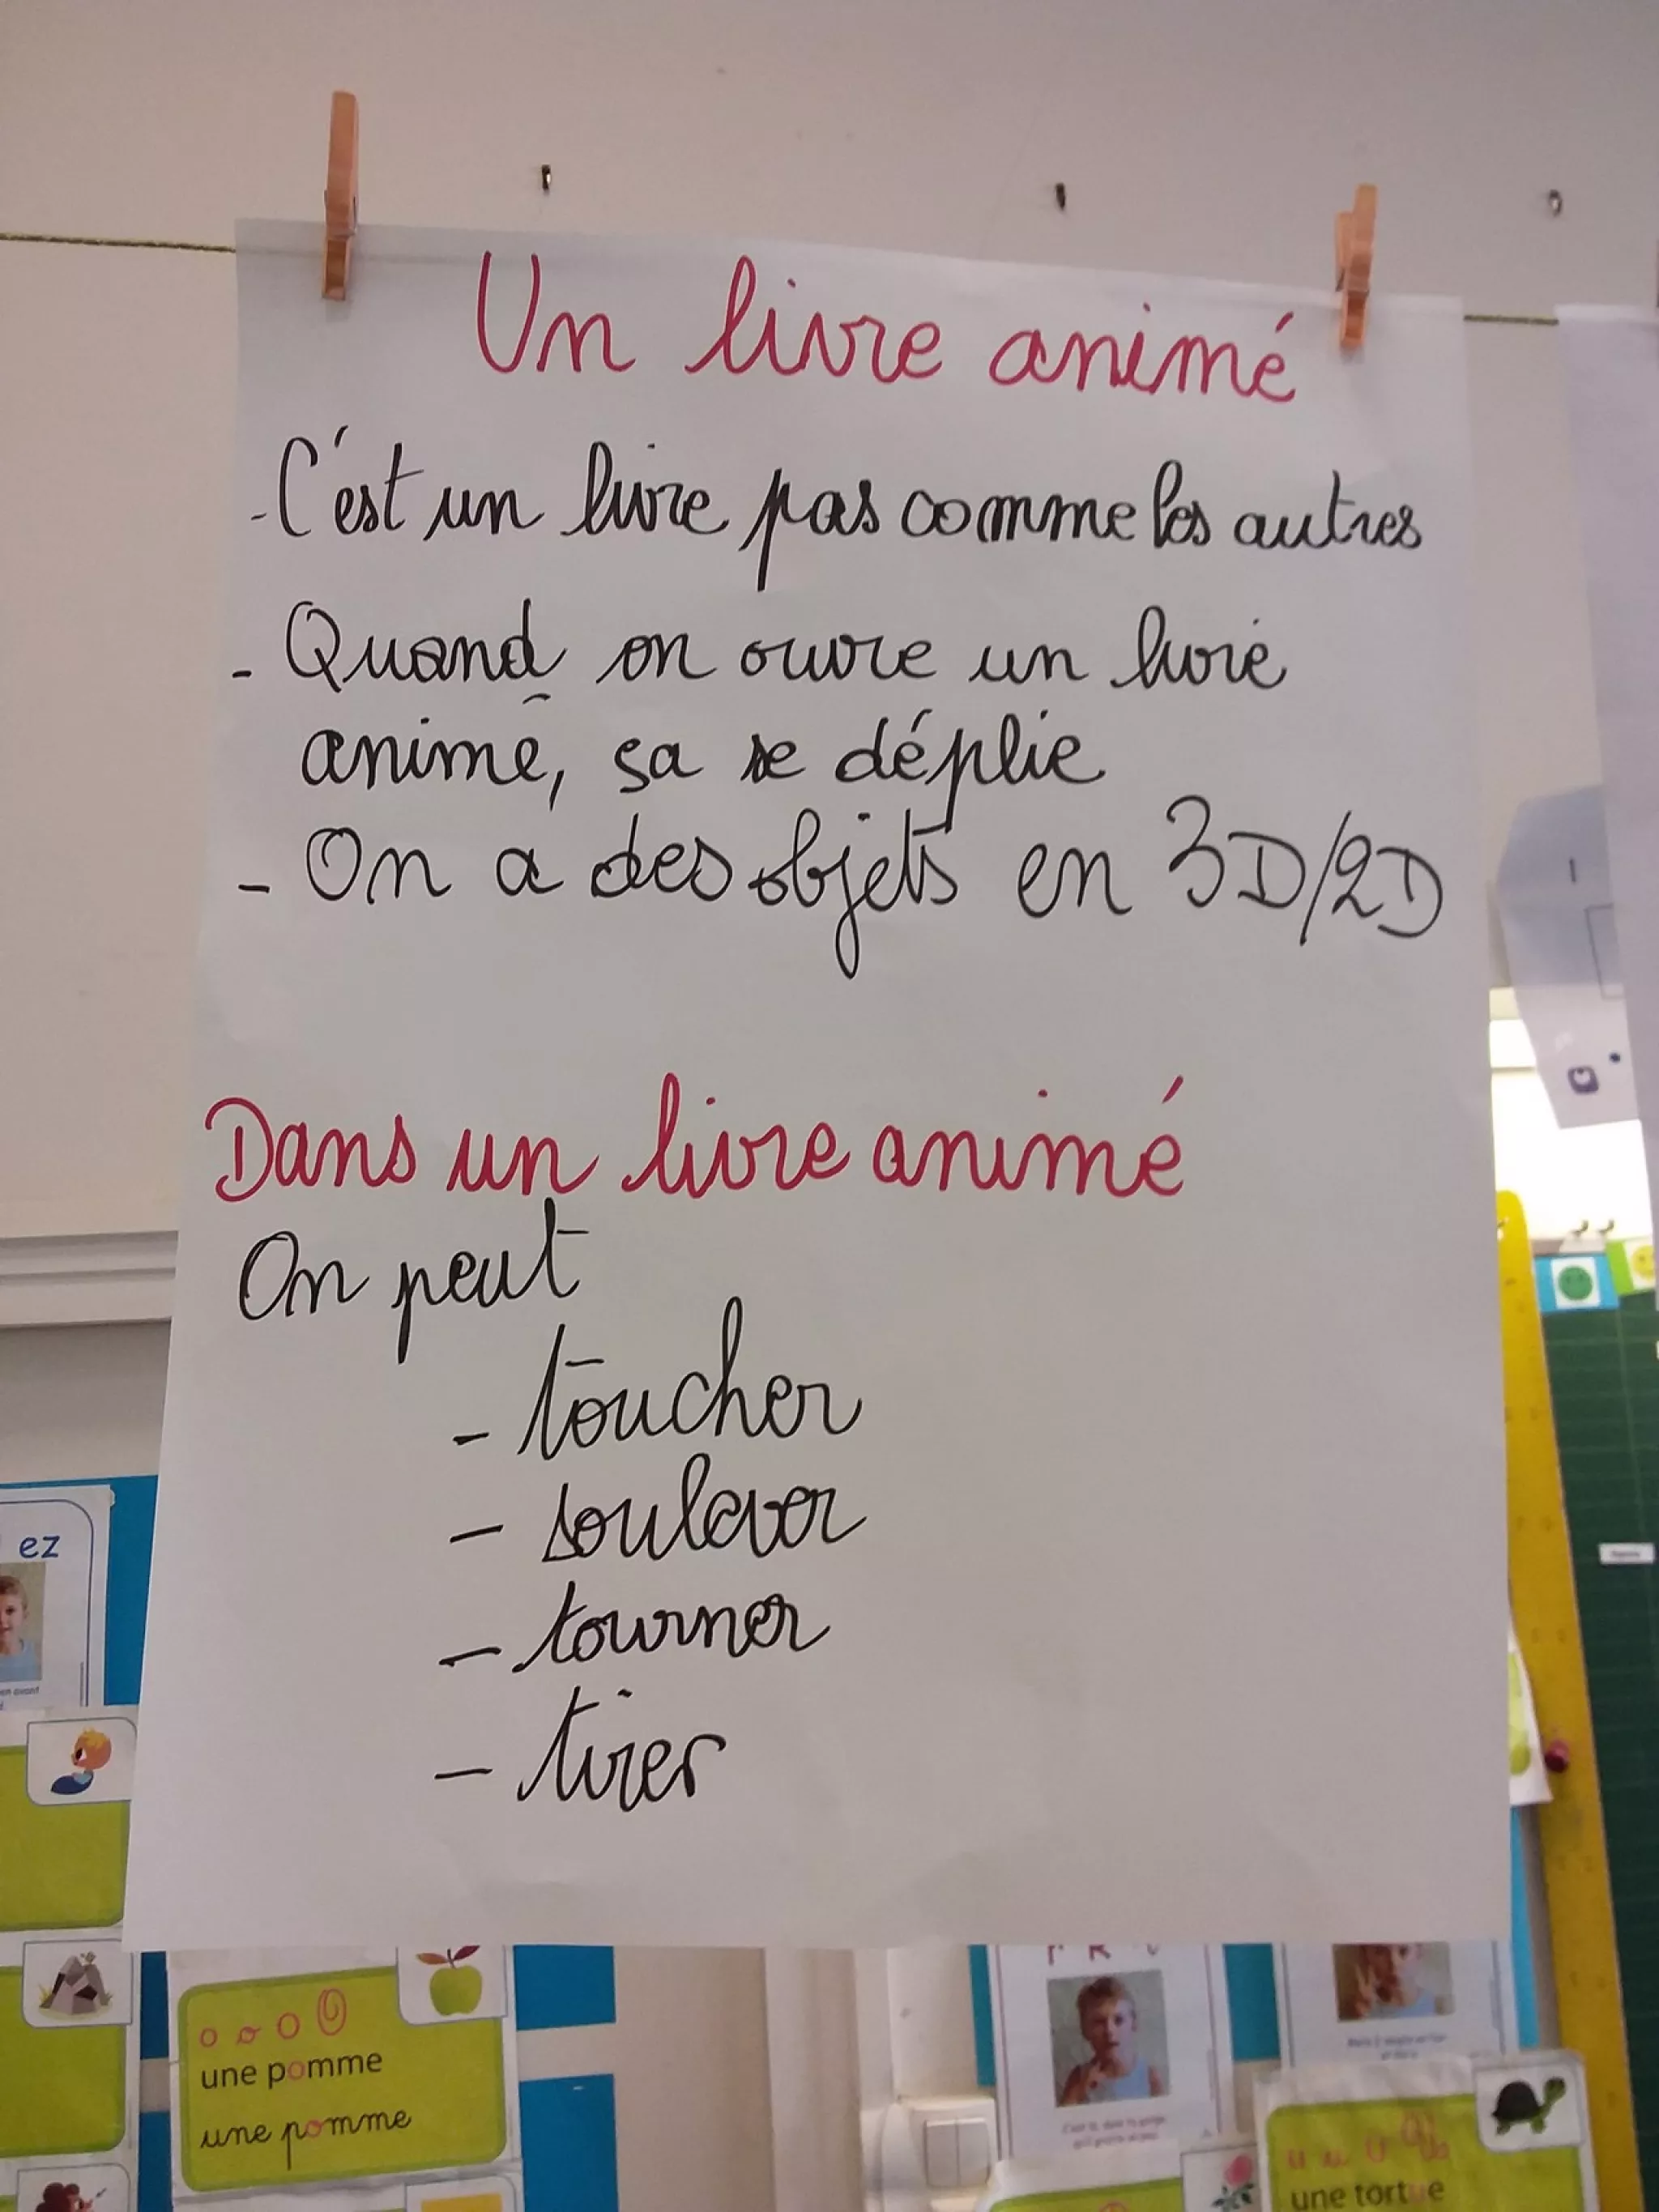 Un livre animé
- C'est un livre pas comme les autres
- Quand on ouvre un livre
animé, sa se déplie
- On a des objets en 3D/2D
Dans un livre animé
On peut
- toucher
- soulever
- tourner
- tirer
ez
o o o O
une pomme
une pomme
u u U
une tortue